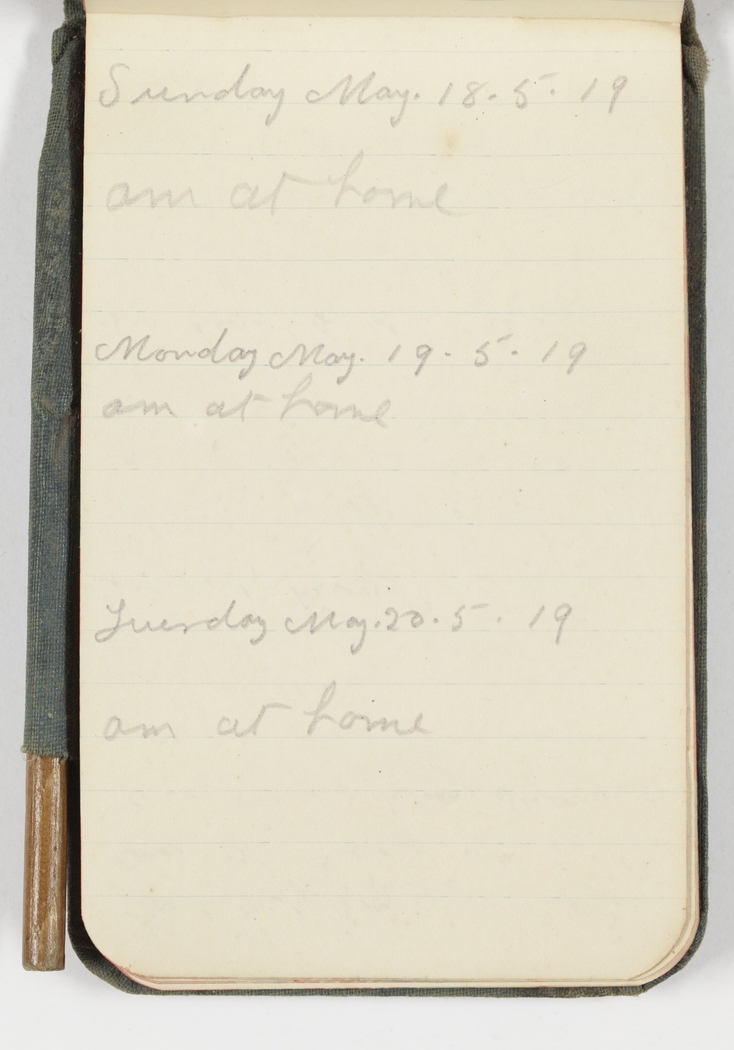 Sunday May. 18. 5. 19
am at home
Monday May. 19. 5. 19
am at home
Tuesday May. 20. 5. 19
am at home